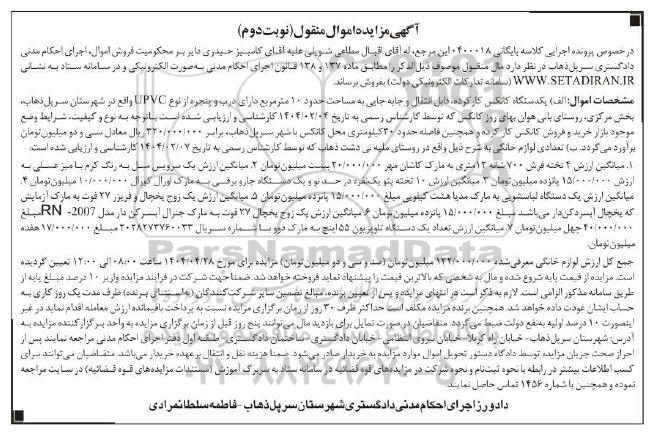 آگهی مزایده اموال منقول (نوبت دوم)
درخصوص پرونده اجرایی کلاسه بایگانی ۰۴۰۰۰۱۸ این مرجع، له آقای اقبال مطاعی شوپلی علیه آقای کامبیز حیدری دایر بر محکومیت فروش اموال، اجرای احکام مدنی
دادگستری سرپل‌ذهاب در نظر دارد مال منقول موصوف ذیل‌الذکر را مطابق ماده ۱۳۷ و ۱۳۸ قانون اجرای احکام مدنی به‌صورت الکترونیکی و در سامانه ستاد به نشانی
WWW.SETADIRAN.IR (سامانه تدارکات الکترونیکی دولت) بفروش برساند.
مشخصات اموال: الف) یکدستگاه کانکس کارکرده، قابل انتقال و جابه جایی به مساحت حدود ۱۰ مترمربع دارای درب و پنجره از نوع UPVC واقع در شهرستان سرپل‌ذهاب،
بخش مرکزی، روستای بانی هوان بهای روز کانکس که توسط کارشناس رسمی به تاریخ ۱۴۰۴/۰۲/۰۴ کارشناسی و ارزیابی شده است باتوجه به نوع و کیفیت، شرایط وضع
موجود بازار خرید و فروش کانکس کار کرده و همچنین فاصله حدود ۳۰کیلومتری محل کانکس با شهر سرپل‌ذهاب، برابر ۳۲۰/۰۰۰/۰۰۰ ریال معادل سی و دو میلیون‌تومان
برآورد می‌گردد. ب) تعدادی لوازم خانگی به شرح ذیل واقع در روستای مله نی دشت ذهاب که توسط کارشناس رسمی به تاریخ ۱۴۰۴/۰۲/۰۷ کارشناسی و ارزیابی شده است:
۱. میانگین ارزش ۴ تخته فرش ۷۰۰ شانه ۱۲متری به مارک کاشان مهر ۲۰/۰۰۰/۰۰۰ بیست میلیون‌تومان ۲. میانگین ارزش یک سرویس مبل به رنگ کرم با میز عسلی به
ارزش ۱۵/۰۰۰/۰۰۰ پانزده میلیون‌تومان ۳. میانگین ارزش ۱۰ تخته پتو یک‌نفره در حد نو و یک دستگاه جارو برقی به مارک اورال کورال ۱۰/۰۰۰/۰۰۰ میلیون‌تومان ۴.
میانگین ارزش یک دستگاه لباسشویی به مارک مدیا هشت کیلویی مبلغ ۱۵/۰۰۰/۰۰۰ پانزده میلیون‌تومان ۵. میانگین ارزش یک زوج یخچال و فریزر ۲۷ فوت به مارک آزمایش
که یخچال آبسردکن‌دار می‌باشد مبلغ ۱۵/۰۰۰/۰۰۰ پانزده میلیون تومان ۶. میانگین ارزش یک زوج یخچال ۲۷ فوت به مارک جنرال آبسرکن دار مدل RN-2007 مبلغ
۴۰/۰۰۰/۰۰۰ چهل میلیون‌تومان ۷. میانگین ارزش تعداد یک دستگاه تلویزیون ۵۵اینچ به مارک دوو با شماره سریال ۲۰۲۸۲۷۳۷۶۰۰۳۳ مبلغ ۱۷/۰۰۰/۰۰۰ هفده
میلیون‌تومان.
جمع کل ارزش لوازم خانگی معرفی‌شده ۱۳۲/۰۰۰/۰۰۰ میلیون‌تومان (صد و سی و دو میلیون‌تومان) مزایده برای مورخ ۱۴۰۴/۰۴/۲۸ ساعت ۰۸:۰۰ الی ۱۲:۰۰ تعیین گردیده
است. مزایده از قیمت پایه شروع شده و مال به شخصی که بالاترین قیمت را پیشنهاد نماید فروخته خواهد شد. ضمنا جهت شرکت در فرایند مزایده واریز ۱۰ درصد مبلغ پایه از
طریق سامانه مذکور الزامی است. لازم به ذکر است در انتهای مزایده و پس از تعیین برنده، مبالغ تضمین سایر شرکت‌کنندگان (به استثنای برنده) ظرف مدت یک روز کاری به
حساب ایشان عودت داده خواهد شد. همچنین برنده مزایده مکلف است حداکثر ظرف ۳۰ روز از زمان برگزاری مزایده نسبت به پرداخت باقیمانده ارزش معامله اقدام نماید در غیر
اینصورت ۱۰ درصد اولیه به‌نفع دولت ضبط می‌گردد. متقاضیان در صورت تمایل برای بازدید مال می‌توانند پنج روز قبل از زمان برگزاری مزایده به واحد برگزارکننده مزایده به
آدرس: شهرستان سرپل‌ذهاب- خیابان راه کربلا- خیابان نیروی انتظامی- خیابان دادگستری- ساختمان دادگستری- طبقه اول دفتر اجرای احکام مدنی مراجعه نمایند پس از
احراز صحت جریان مزایده توسط دادگاه دستور تحویل اموال موارد مزایده به خریدار صادر می‌شود. ضمنا هزینه نقل و انتقال برعهده خریدار می‌باشد. متقاضیان می‌توانند برای
کسب اطلاعات بیشتر در رابطه با نحوه ثبت‌نام و نحوه شرکت در مزایده‌های قوه قضائیه در سامانه ستاد به سربرگ آموزش (مستندات مزایده‌های قوه قضائیه) در سایت مراجعه
نموده و همچنین با شماره ۱۴۵۶ تماس حاصل نمایند.
دادورز اجرای احکام مدنی دادگستری شهرستان سرپل ذهاب - فاطمه سلطانمرادی